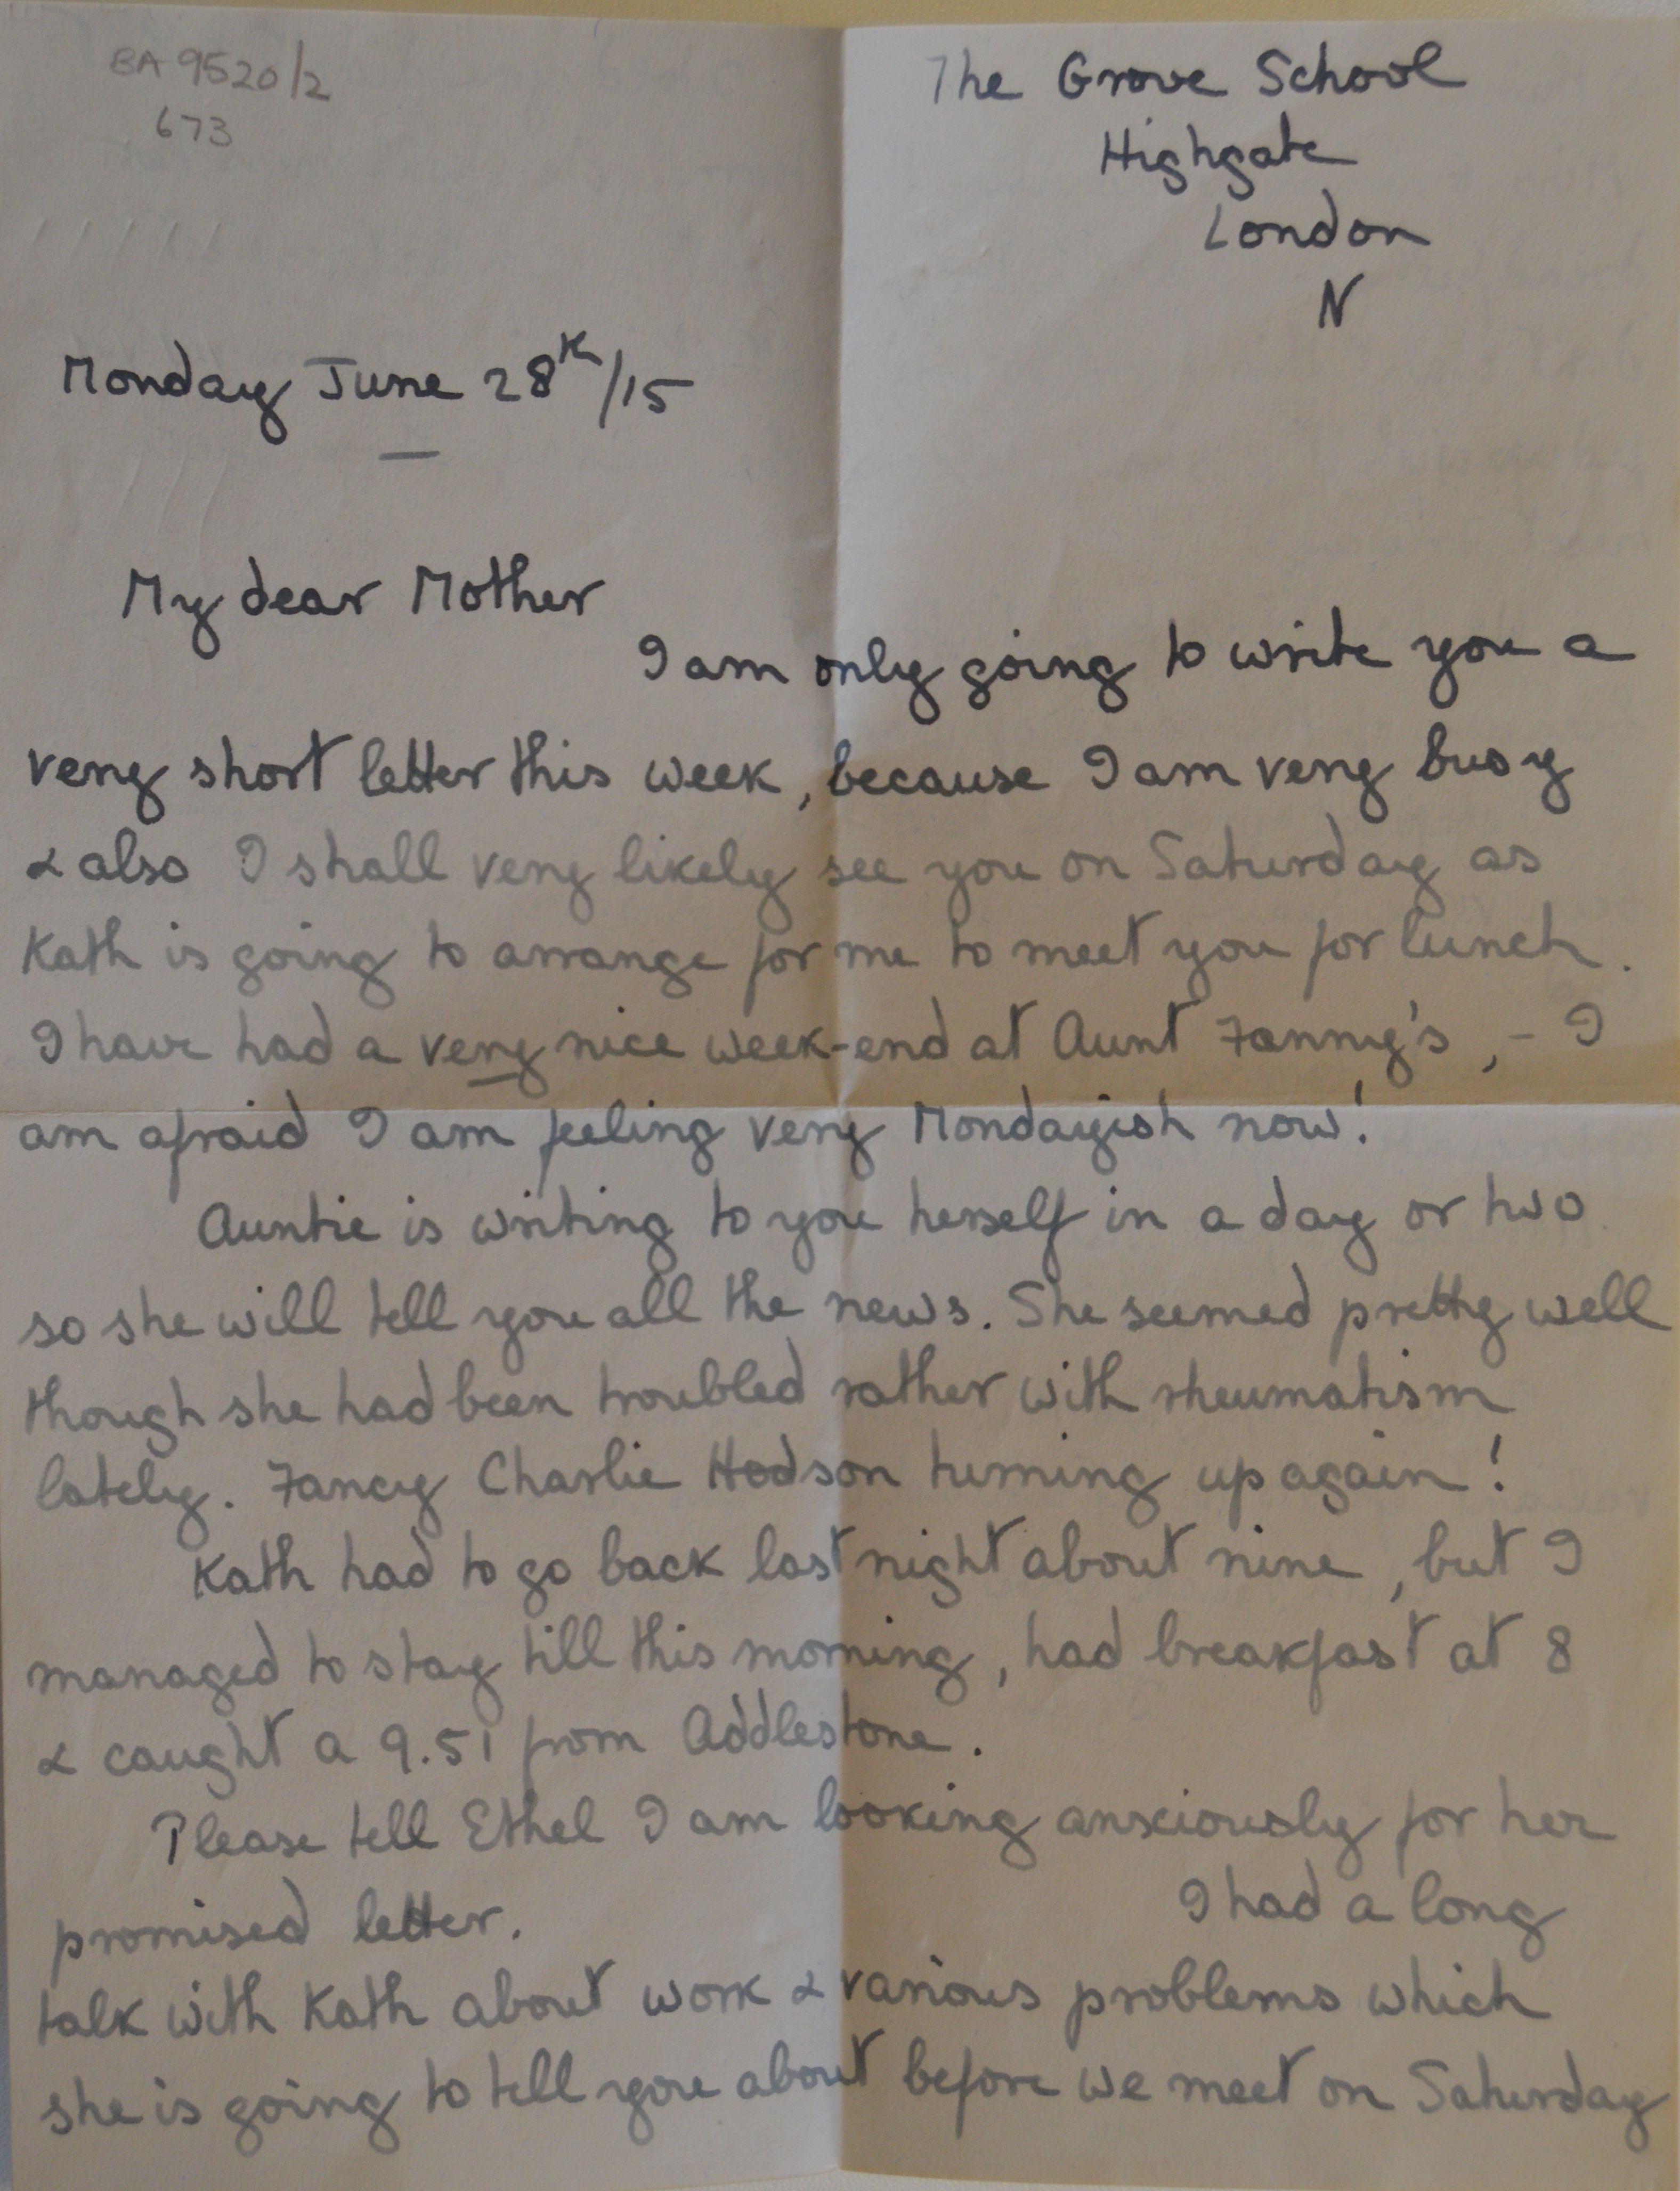 BA 9520/2
673
The Grove School
Highgate
London
N
Monday June 28th/15
My dear Mother
I am only going to write you a
very short letter this week, because I am very busy
& also I shall very likely see you on Saturday as
Kath is going to arrange for me to meet you for lunch.
I have had a very nice week-end at Aunt Fanny's, - I
am afraid I am feeling very Mondayish now!
Auntie is writing to you herself in a day or two
so she will tell you all the news. She seemed pretty well
though she had been troubled rather with rheumatism
lately. Fancy Charlie Hodson turning up again!
Kath had to go back last night about nine, but I
managed to stay till this morning, had breakfast at 8
& caught a 9.51 from Addlestone.
Please tell Ethel I am looking anxiously for her
promised letter. I had a long
talk with Kath about work & various problems which
she is going to tell you about before we meet on Saturday